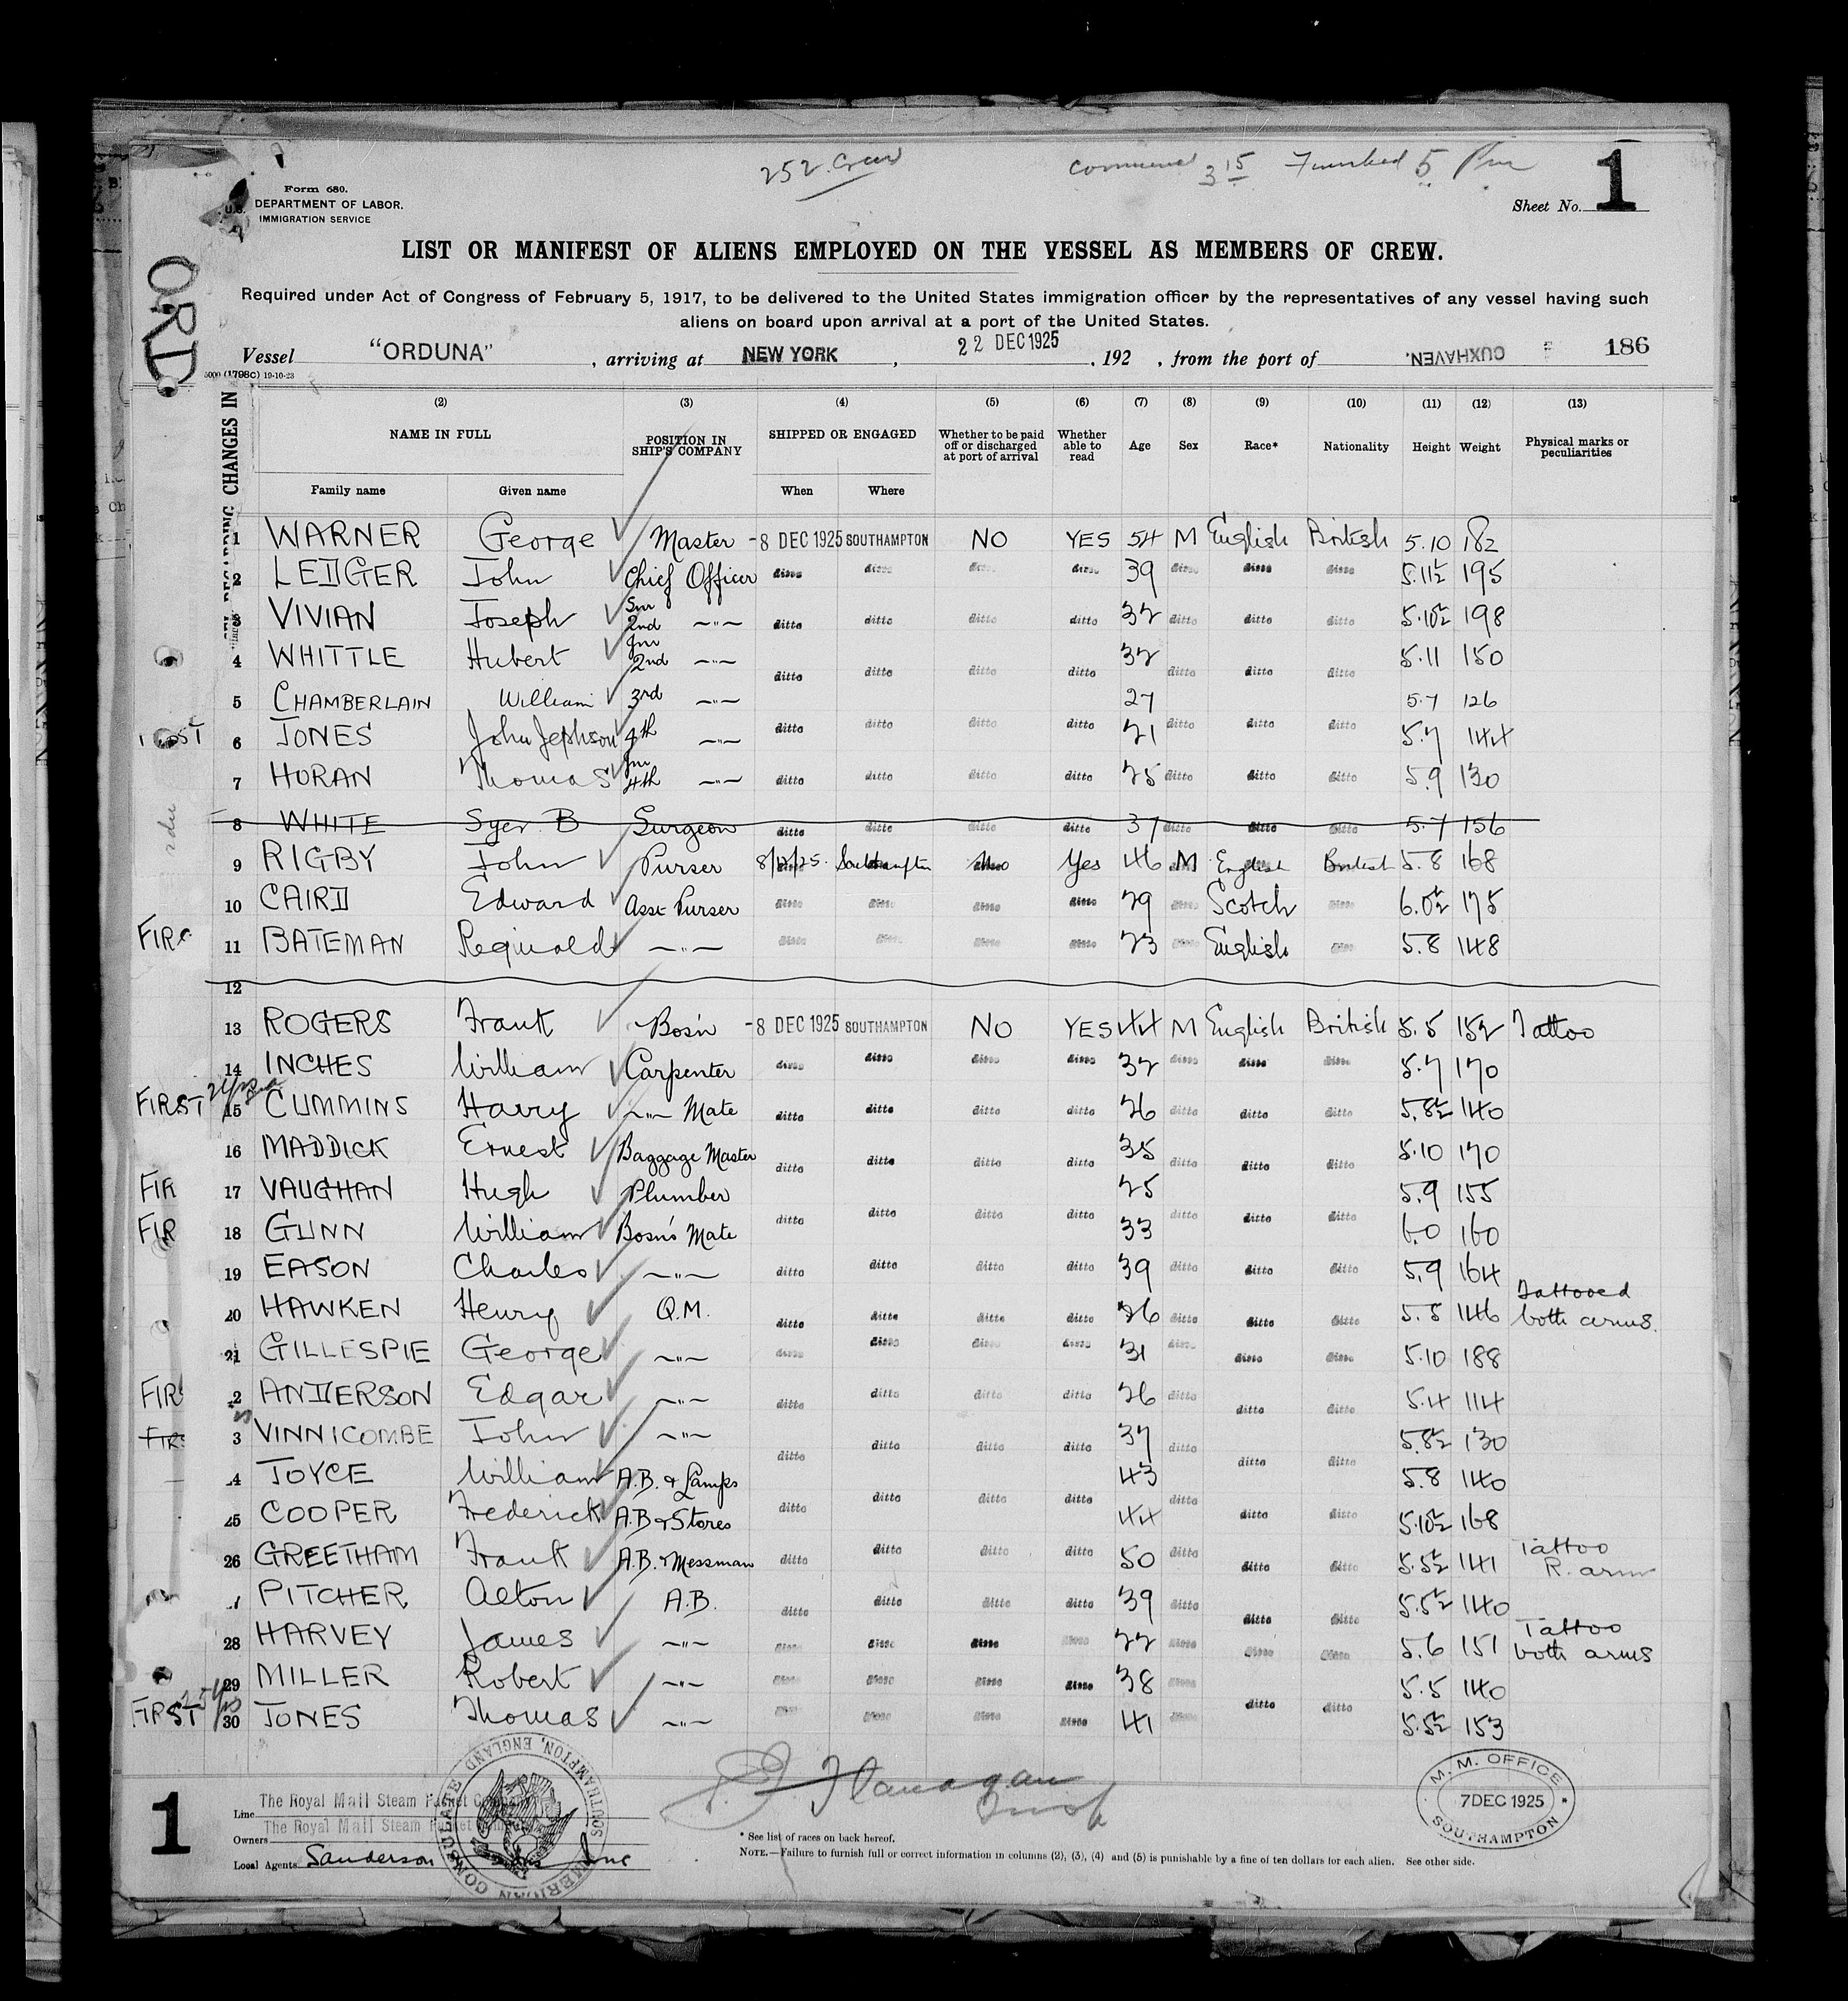 252 Crew
Commenced 3 15 Finished 5 Pm
Form 680.
U.S. DEPARTMENT OF LABOR.
IMMIGRATION SERVICE
Sheet No. 1
ORD.
LIST OR MANIFEST OF ALIENS EMPLOYED ON THE VESSEL AS MEMBERS OF CREW.
Required under Act of Congress of February 5, 1917, to be delivered to the United States immigration officer by the representatives of any vessel having such
aliens on board upon arrival at a port of the United States.
Vessel "ORDUNA", arriving at NEW YORK, 22 DEC 1925, 192 , from the port of CUXHAVEN. 186
5000 (1798C) 19-10-23
CHANGES IN
(2) (3) (4) (5) (6) (7) (8) (9) (10) (11) (12) (13)
NAME IN FULL POSITION IN SHIP'S COMPANY SHIPPED OR ENGAGED Whether to be paid off or discharged at port of arrival Whether able to read Age Sex Race* Nationality Height Weight Physical marks or peculiarities
Family name Given name When Where
1 WARNER George Master -8 DEC 1925 SOUTHAMPTON NO YES 54 M English British 5.10 182
2 LEDGER John Chief Officer ditto ditto ditto ditto 39 ditto ditto ditto 5.11½ 195
3 VIVIAN Joseph Snr 2nd -"- ditto ditto ditto ditto 32 ditto ditto ditto 5.10½ 198
4 WHITTLE Hubert Jnr 2nd -"- ditto ditto ditto ditto 32 ditto ditto ditto 5.11 150
5 CHAMBERLAIN William 3rd -"- 27 5.7 126
6 JONES John Jephson 4th -"- ditto ditto ditto ditto 21 ditto ditto ditto 5.7 144
7 HORAN Thomas Jnr 4th -"- ditto ditto ditto ditto 25 ditto ditto ditto 5.9 130
8 WHITE Syer B Surgeon ditto ditto ditto ditto 37 ditto ditto ditto 5.7 156
9 RIGBY John Purser 8/12/25 Southampton No Yes 46 M English British 5.8 168
10 CAIRD Edward Asst Purser ditto ditto ditto ditto 29 ditto Scotch ditto 6.0½ 175
11 BATEMAN Reginald -"- ditto ditto ditto ditto 23 ditto English ditto 5.8 148
12
13 ROGERS Frank Bos'n -8 DEC 1925 SOUTHAMPTON NO YES 44 M English British 5.5 152 Tattoo
14 INCHES William Carpenter ditto ditto ditto ditto 32 ditto ditto ditto 5.7 170
FIRST 15 CUMMINS Harry -"- Mate ditto ditto ditto ditto 26 ditto ditto ditto 5.8½ 140
16 MADDICK Ernest Baggage Master ditto ditto ditto ditto 35 ditto ditto ditto 5.10 170
FIR 17 VAUGHAN Hugh Plumber 25 5.9 155
FIR 18 GUNN William Bosn's Mate ditto ditto ditto ditto 33 ditto ditto ditto 6.0 160
19 EASON Charles -"- ditto ditto ditto ditto 39 ditto ditto ditto 5.9 164
20 HAWKEN Henry Q.M. ditto ditto ditto ditto 26 ditto ditto ditto 5.5 146 Tattooed both arms.
21 GILLESPIE George -"- ditto ditto ditto ditto 31 ditto ditto ditto 5.10 188
FIRS 2 ANDERSON Edgar -"- ditto ditto ditto ditto 26 ditto ditto ditto 5.4 114
FIRS 3 VINNICOMBE John -"- ditto ditto ditto ditto 37 ditto ditto ditto 5.8½ 130
4 JOYCE William A.B. & Lamps 43 5.8 140
25 COOPER Frederick A.B & Stores ditto ditto ditto ditto 44 ditto ditto ditto 5.10½ 168
26 GREETHAM Frank A.B. & Messman ditto ditto ditto ditto 50 ditto ditto ditto 5.5½ 141 Tattoo R. arm
PITCHER Alton A.B. ditto ditto ditto ditto 39 ditto ditto ditto 5.5½ 140
28 HARVEY James -"- ditto ditto ditto ditto 22 ditto ditto ditto 5.6 151 Tattoo both arms
29 MILLER Robert -"- ditto ditto ditto ditto 38 ditto 5.5 140
FIRST 30 JONES Thomas -"- ditto ditto ditto ditto 41 ditto ditto ditto 5.5½ 153
AMERICAN CONSULATE SOUTHAMPTON, ENGLAND
Flanagan
M. M. OFFICE
7 DEC 1925
SOUTHAMPTON
1
Line The Royal Mail Steam Packet Company
Owners The Royal Mail Steam Packet
Local Agents Sanderson Inc
* See list of races on back hereof.
NOTE.—Failure to furnish full or correct information in columns (2), (3), (4) and (5) is punishable by a fine of ten dollars for each alien. See other side.